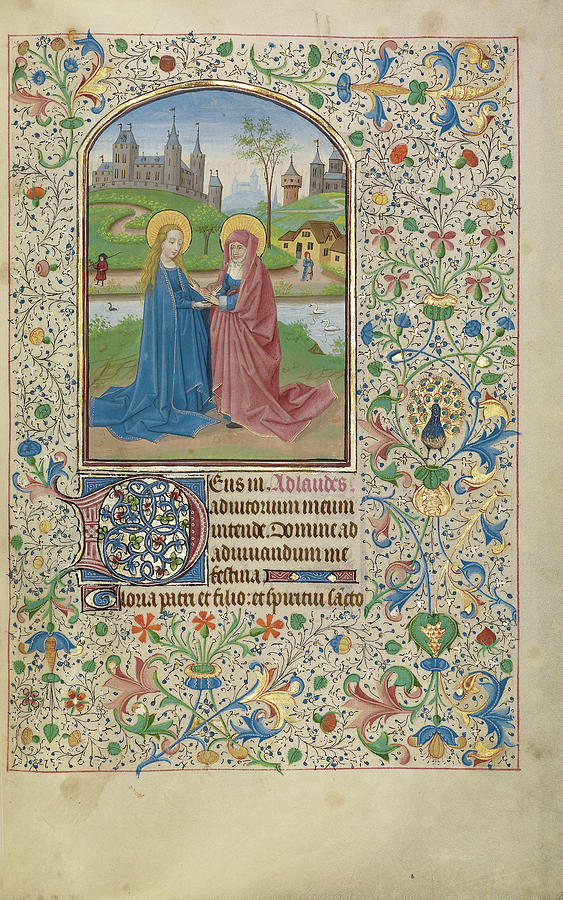 DEus in. Ad laudes.
adiutorium meum
intende. Domine ad
adiuuandum me
festina
Gloria patri et filio: et spiritui sācto